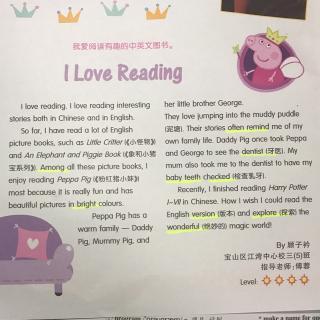 我爱阅读有趣的中英文图书。
I Love Reading
I love reading. I love reading interesting
stories both in Chinese and in English.
So far, I have read a lot of English
picture books, such as Little Critter (《小怪物》)
and An Elephant and Piggie Book (《象和小猪
宝系列》). Among all these picture books, I
enjoy reading Peppa Pig (《粉红猪小妹》)
most because it is really fun and has
beautiful pictures in bright colours.
Peppa Pig has a
warm family — Daddy
Pig, Mummy Pig, and
her little brother George.
They love jumping into the muddy puddle
(泥塘). Their stories often remind me of my
own family life. Daddy Pig once took Peppa
and George to see the dentist (牙医). My
mum also took me to the dentist to have my
baby teeth checked (检查乳牙).
Recently, I finished reading Harry Potter
I-VII in Chinese. How I wish I could read the
English version (版本) and explore (探索) the
wonderful (绝妙的) magic world!
By 顾子衿
宝山区江湾中心校三(5)班
指导老师：傅蓉
Level:
* make a name for one